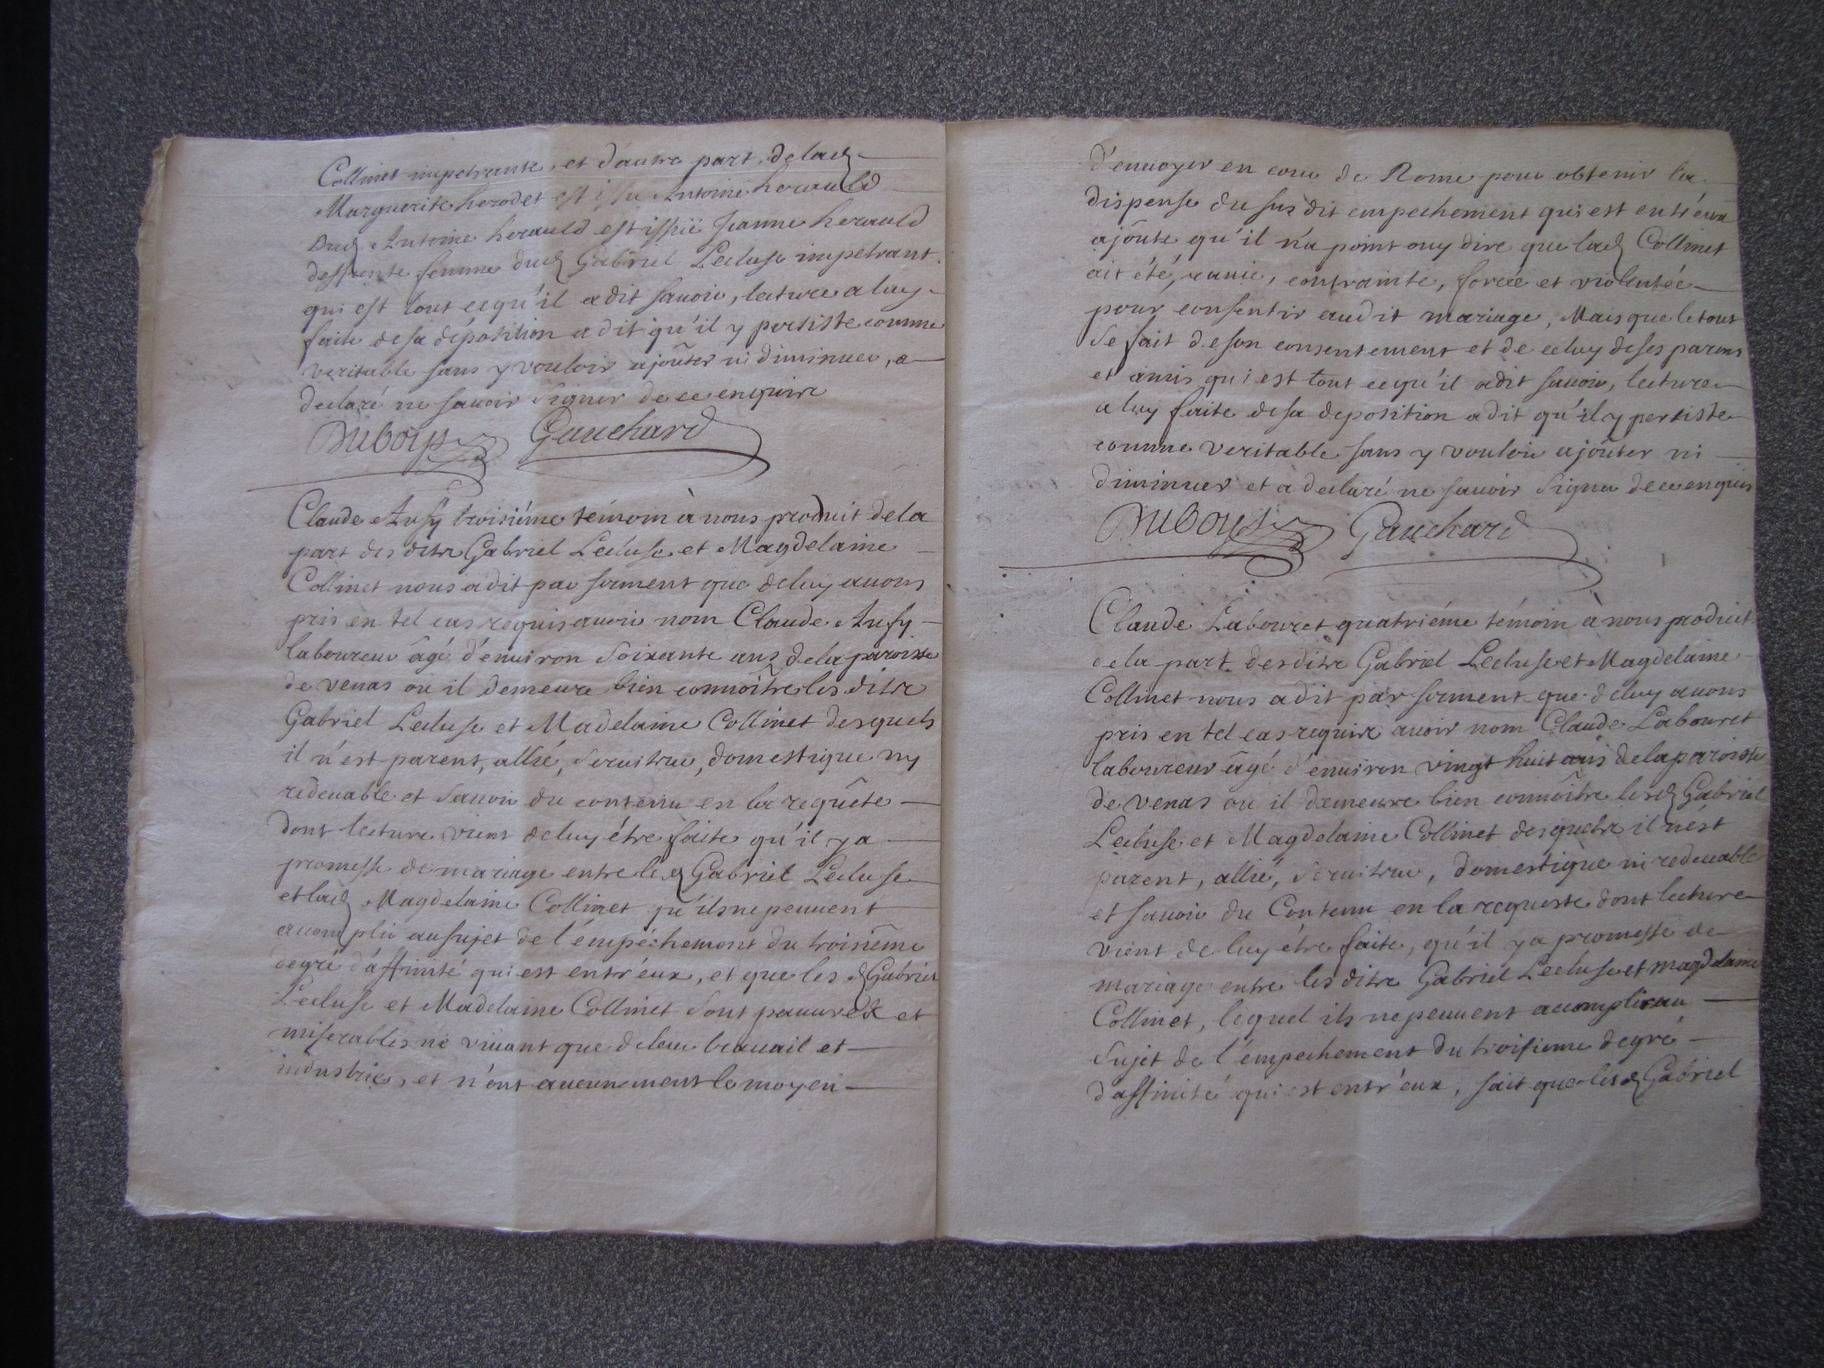 Collinet impetrante, et d'autre part de lad.
Marguerite herodet est issu Antoine herauld
Dud. Antoine herauld est issuë Jeanne herauld
deffunte femme dud. Gabriel Lecluse impetrant.
qui est tout ce qu'il a dit sauoir, lecture a luy
faite de sa déposition a dit qu'il y persiste comme
veritable sans y vouloir ajoûter ni diminuer, a
declaré ne sauoir signer de ce enquire
Duboys Gauchard
Claude Aufy troisiéme témoin à nous produit de la
part des ditz Gabriel Lecluse et Magdelaine
Collinet nous a dit par serment que de luy auons
pris en tel cas requis auoir nom Claude Aufy
laboureur âgé d'enuiron soixante ans de la paroisse
de venas ou il demeure bien connoître les ditz
Gabriel Lecluse et Madelaine Collinet desquels
il n'est parent, allié, seruiteur, domestique ny
redeuable et sauoir du contenu en la requête
dont lecture vient de luy être faite qu'il y a
promesse de mariage entre led. Gabriel Lecluse
et lad. Magdelaine Collinet qu'ils ne peuuent
accomplir au sujet de l'empéchement du troisiême
degré d'affinité qui est entr'eux, et que lesd. Gabriel
Lecluse et Madelaine Collinet sont pauures et
miserables ne viuant que de leur trauail et
industrie, et n'ont aucunement le moyen
d'enuoyer en cour de Rome pour obtenir la
dispense du sus dit empechement qui est entr'eux
ajoute qu'il n'a point ouy dire que lad. Collinet
ait été, rauie, contrainte, forcée et violentée
pour consentir audit mariage, Mais que le tout
se fait de son consentement et de celuy de ses parens
et amis qui est tout ce qu'il a dit sauoir, lecture
a luy faite de sa deposition a dit qu'il y persiste
comme veritable sans y vouloir ajoûter ni
diminuer et a declaré ne sauoir signer de ce enquis
Duboys Gauchard
Claude Labouret quatriéme témoin à nous produit
de la part desditz Gabriel Lecluse et Magdelaine
Collinet nous a dit par serment que de luy auons
pris en tel cas require auoir nom Claude Labouret
laboureur âgé d'enuiron vingt huit ans de la paroisse
de venas ou il demeure bien connoître lesd. Gabriel
Lecluse et Magdelaine Collinet desquelz il n'est
parent, allié, seruiteur, domestique ni redeuable
et sauoir du Contenu en la requeste dont lecture
vient de luy être faite, qu'il y a promesse de
mariage entre les ditz Gabriel Lecluse et magdelaine
Collinet, lequel ils ne peuuent accomplir au
sujet de l'empechement du troisieme degré
d'affinité qui est entr'eux, sait que lesd. Gabriel